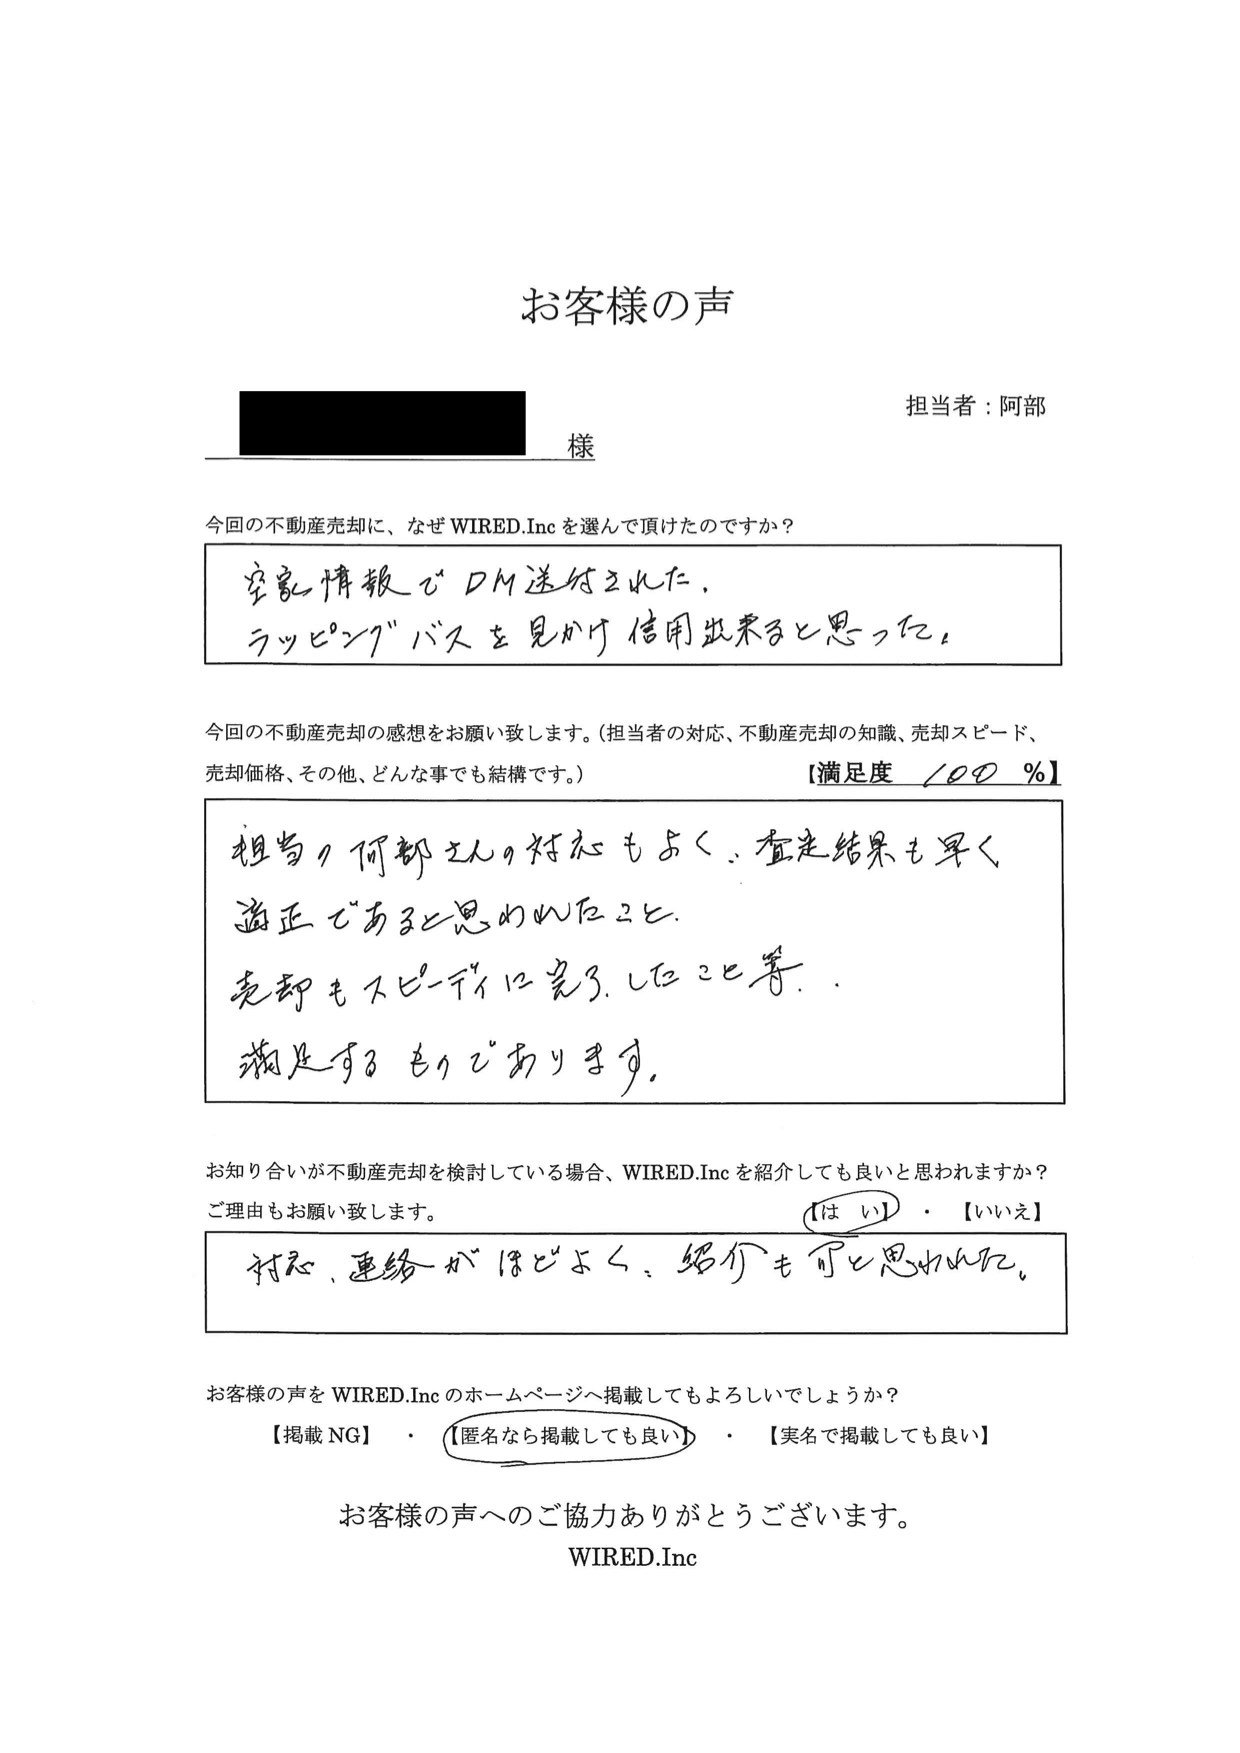 お客様の声
担当者：阿部
様
今回の不動産売却に、なぜWIRED.Incを選んで頂けたのですか？
空家情報でDM送付された.
ラッピングバスを見かけ信用出来ると思った。
今回の不動産売却の感想をお願い致します。（担当者の対応、不動産売却の知識、売却スピード、
売却価格、その他、どんな事でも結構です。）
【満足度　100　%】
担当の阿部さんの対応もよく、査定結果も早く
適正であると思われたこと.
売却もスピーディに完了したこと等..
満足するものであります。
お知り合いが不動産売却を検討している場合、WIRED.Incを紹介しても良いと思われますか？
ご理由もお願い致します。
【は　い】　・　【いいえ】
対応、連絡がほどよく、紹介も可と思われた。
お客様の声をWIRED.Incのホームページへ掲載してもよろしいでしょうか？
【掲載NG】　・　【匿名なら掲載しても良い】　・　【実名で掲載しても良い】
お客様の声へのご協力ありがとうございます。
WIRED.Inc